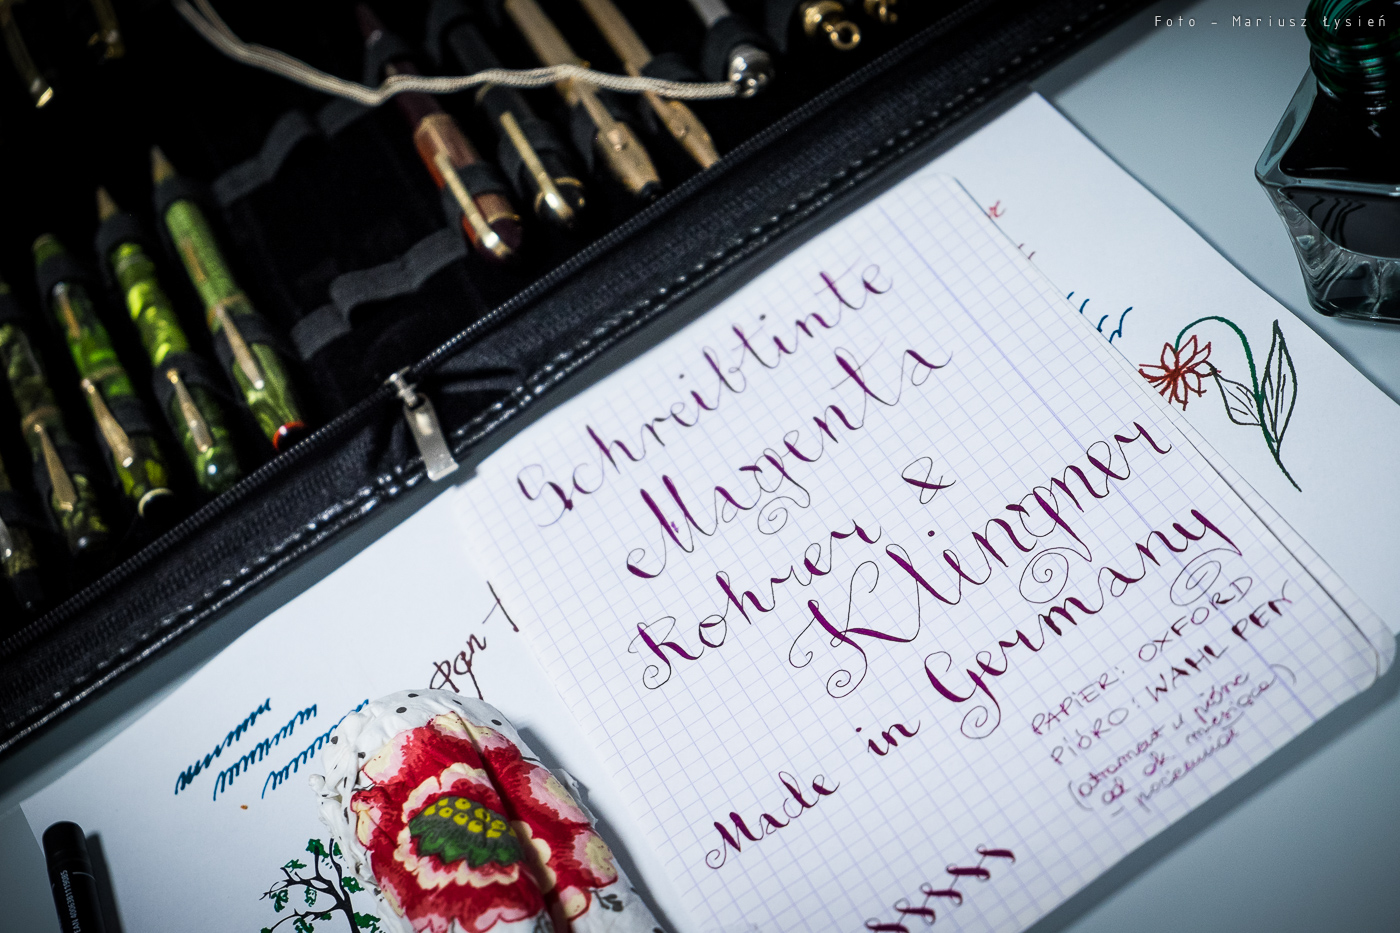 Foto - Mariusz Łysień
Schreibtinte
Magenta
Rohrer &
Klingner
Made in Germany
PAPIER: OXFORD
PIÓRO: WAHL PEN
(atrament w piórze
od ok miesiąca)